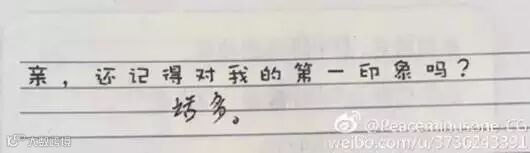 亲，还记得对我的第一印象吗？
话多。
@Peaceminusone_CG
weibo.com/u/3736243391
大数跨境